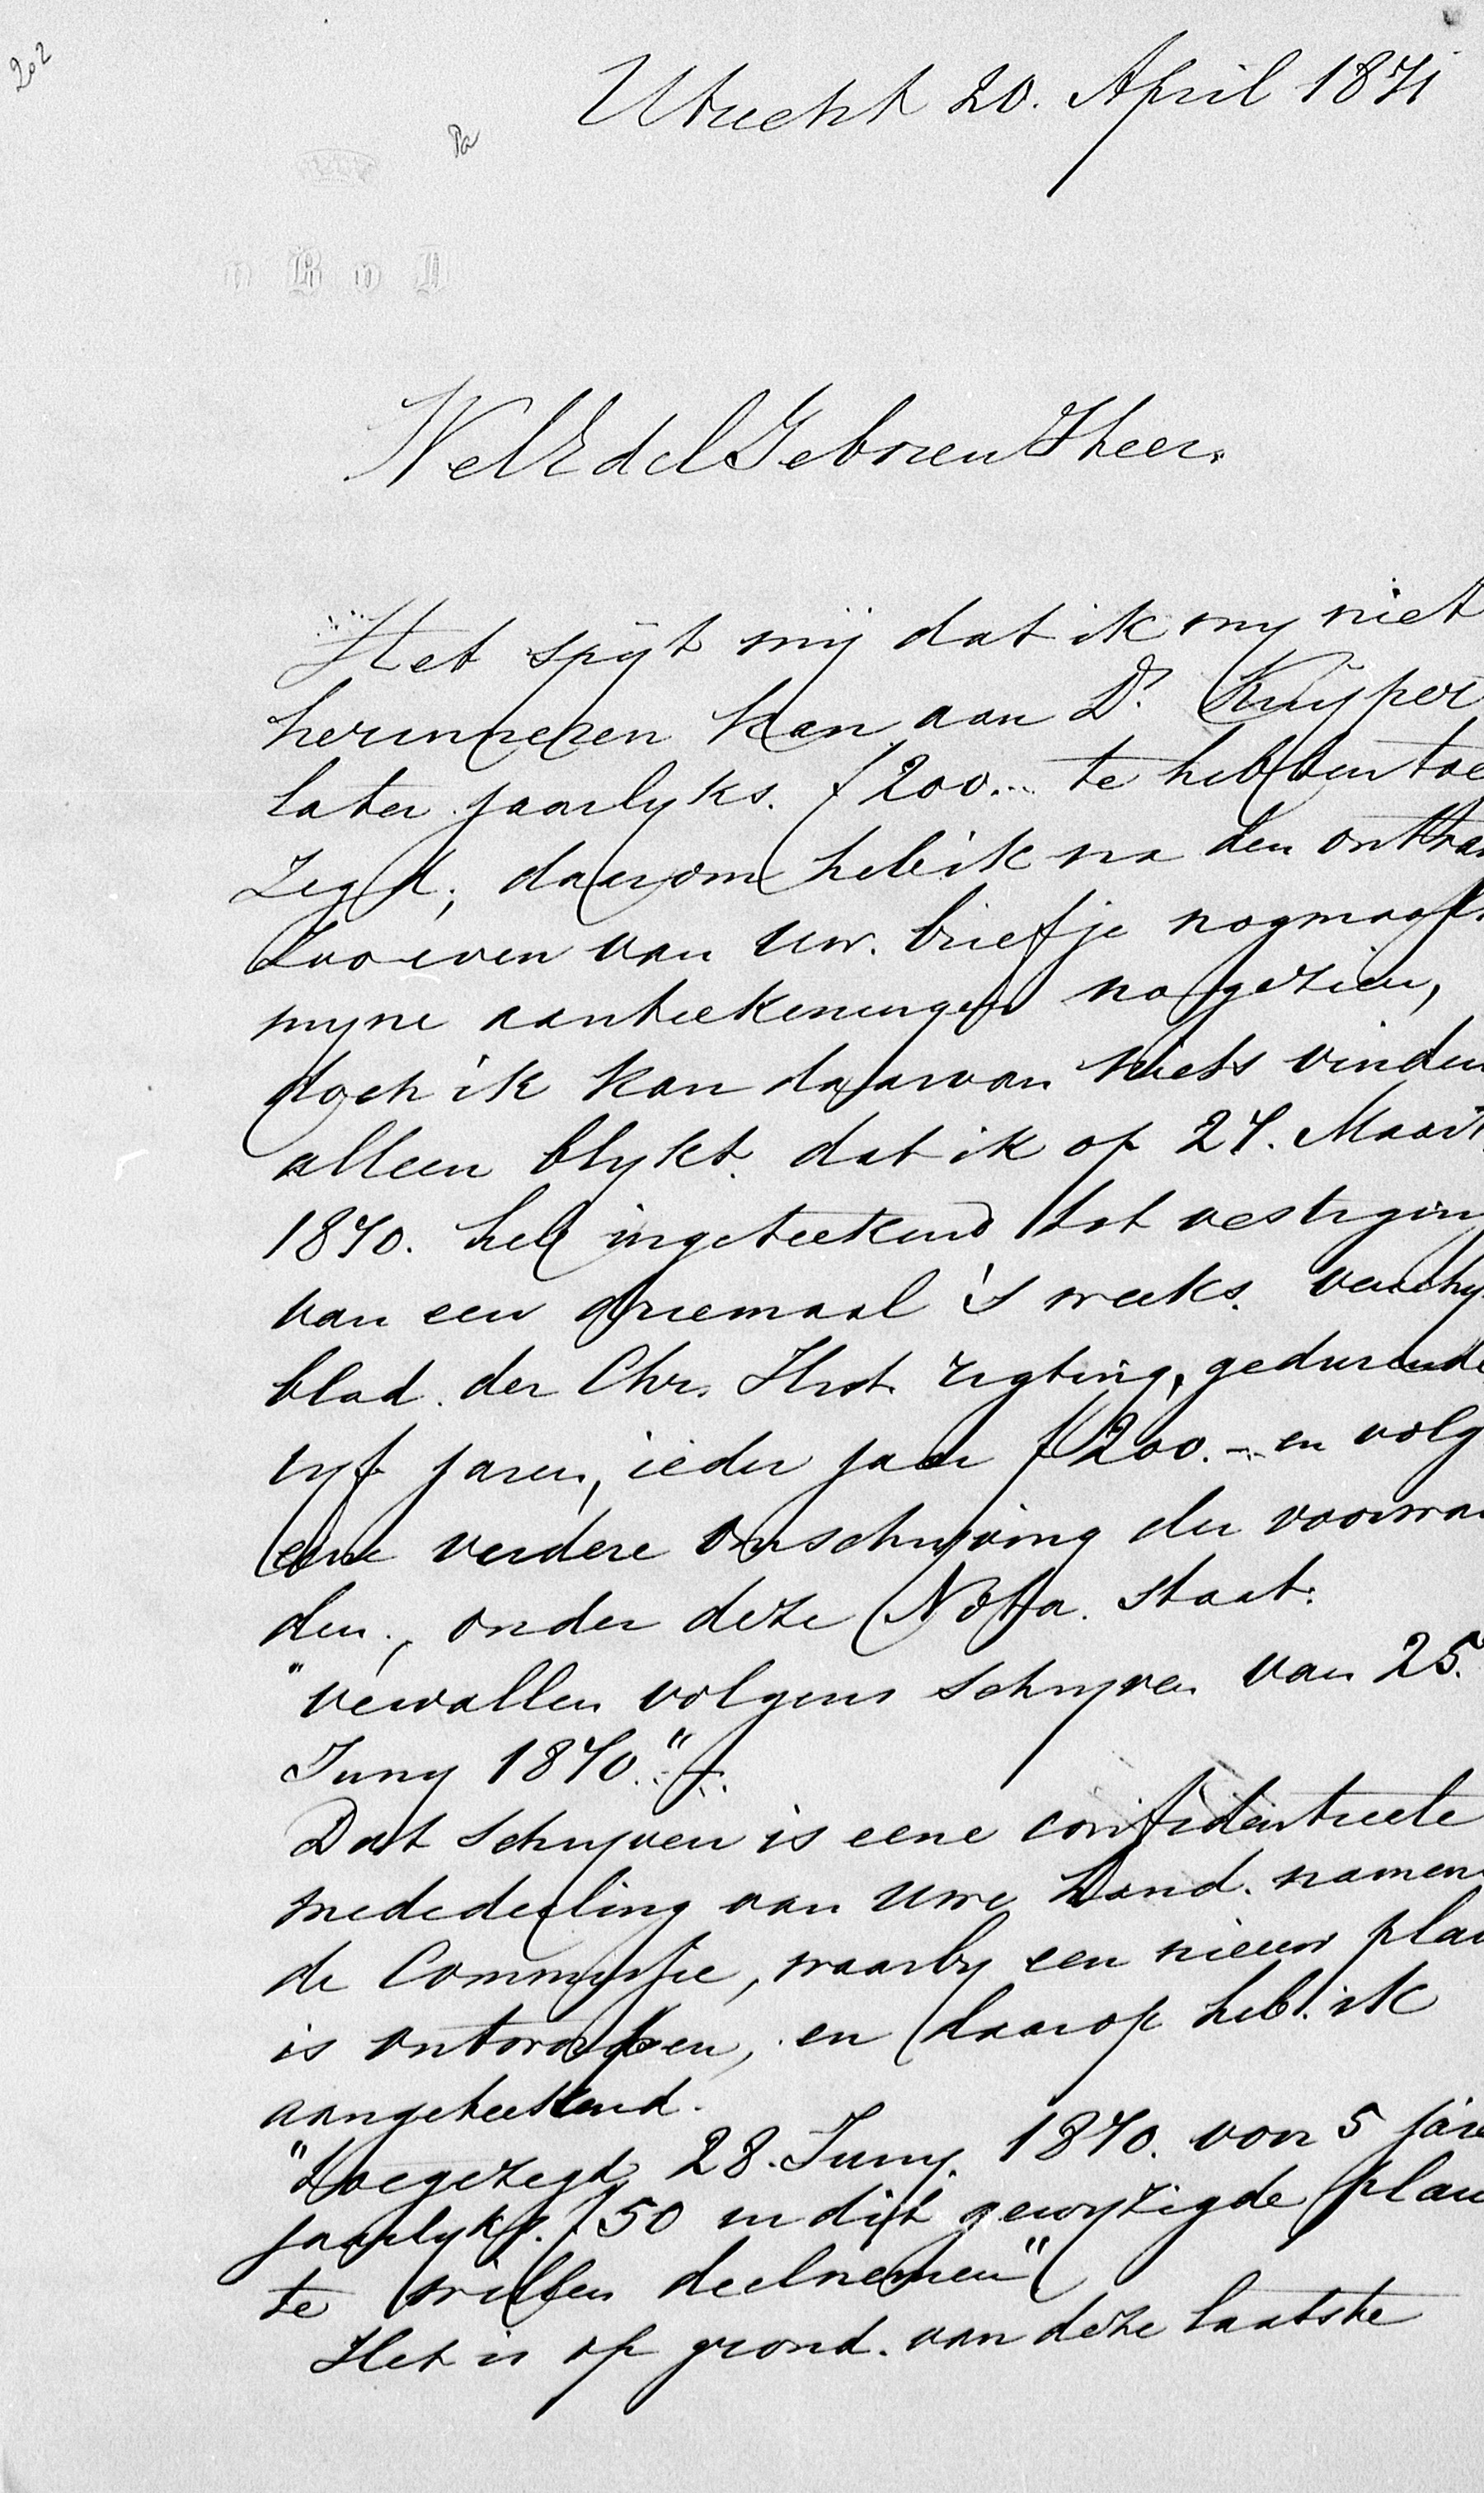 202
Utrecht 20. April 1871
Pa
o B o D
WelEdelGeboren Heer.
Het spijt mij dat ik my niet
herinneren kan aan Dr. Kuyper
later jaarlyks. f200.-. te hebben toe
zegd; daarom heb ik na den ontvan
zoo even van Uw. briefje nogmaals
myne aanteekeningen nagezien,
doch ik kan daarvan niets vinden
alleen blykt. dat ik op 24. Maart
1870. heb ingeteekend tot vestiging
van een driemaal 's weeks. verschy
blad. der Chr. Hist. rigting, gedurende
vyf jaren, ieder jaar f200.-. en volg
eene verdere omschryving der voorwaar
den., onder deze Nota. staat.
"vervallen volgens schryven van 25.
Juny 1870."
Dat schryven is eene confidentieele
mededeeling van Uwe hand. namens
de Commissie, waarby een nieuw plan
is ontworpen, en daarop heb. ik
aangeteekend.
"Toegezegd 28. Juny. 1870. voor 5 jare
jaarlyks. f50 in dit gewyzigde plan
te willen deelnemen"
Het is op grond. van deze laatste